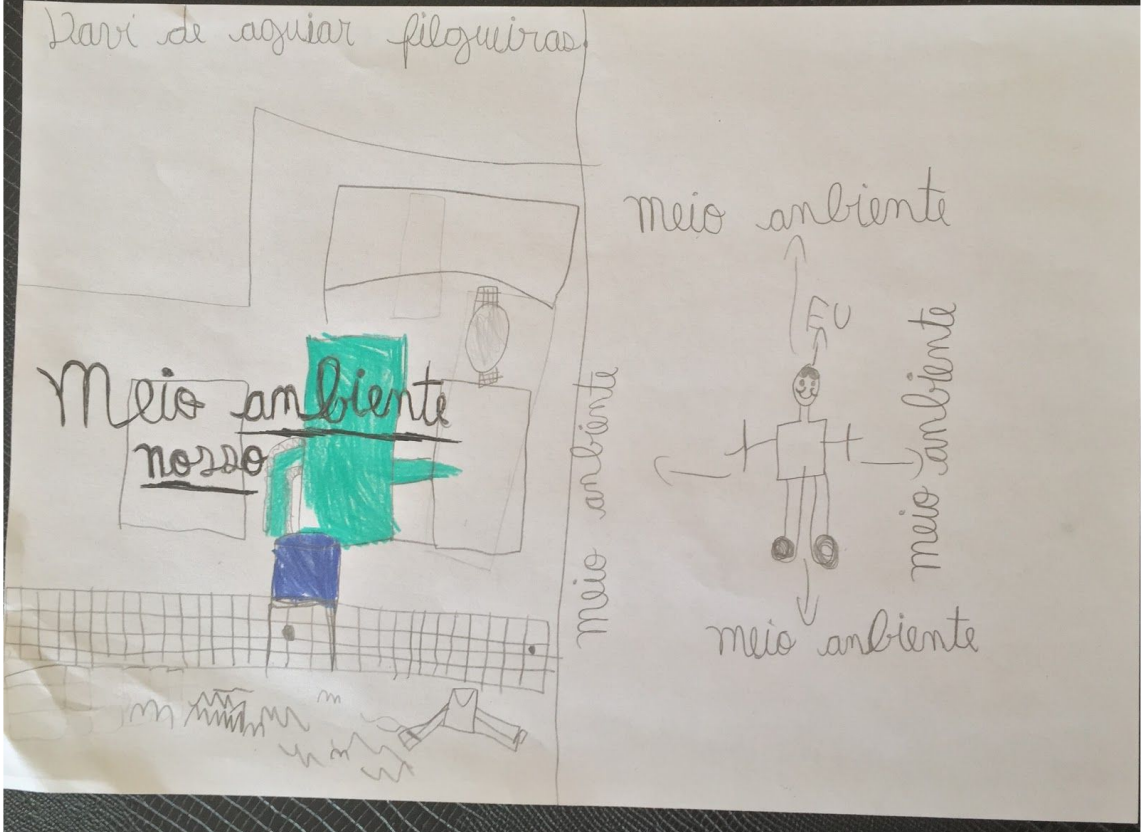 Davi de aguiar filgueiras
Meio ambiente
nosso
meio anbiente
meio anbiente
EU
meio anbiente
meio anbiente